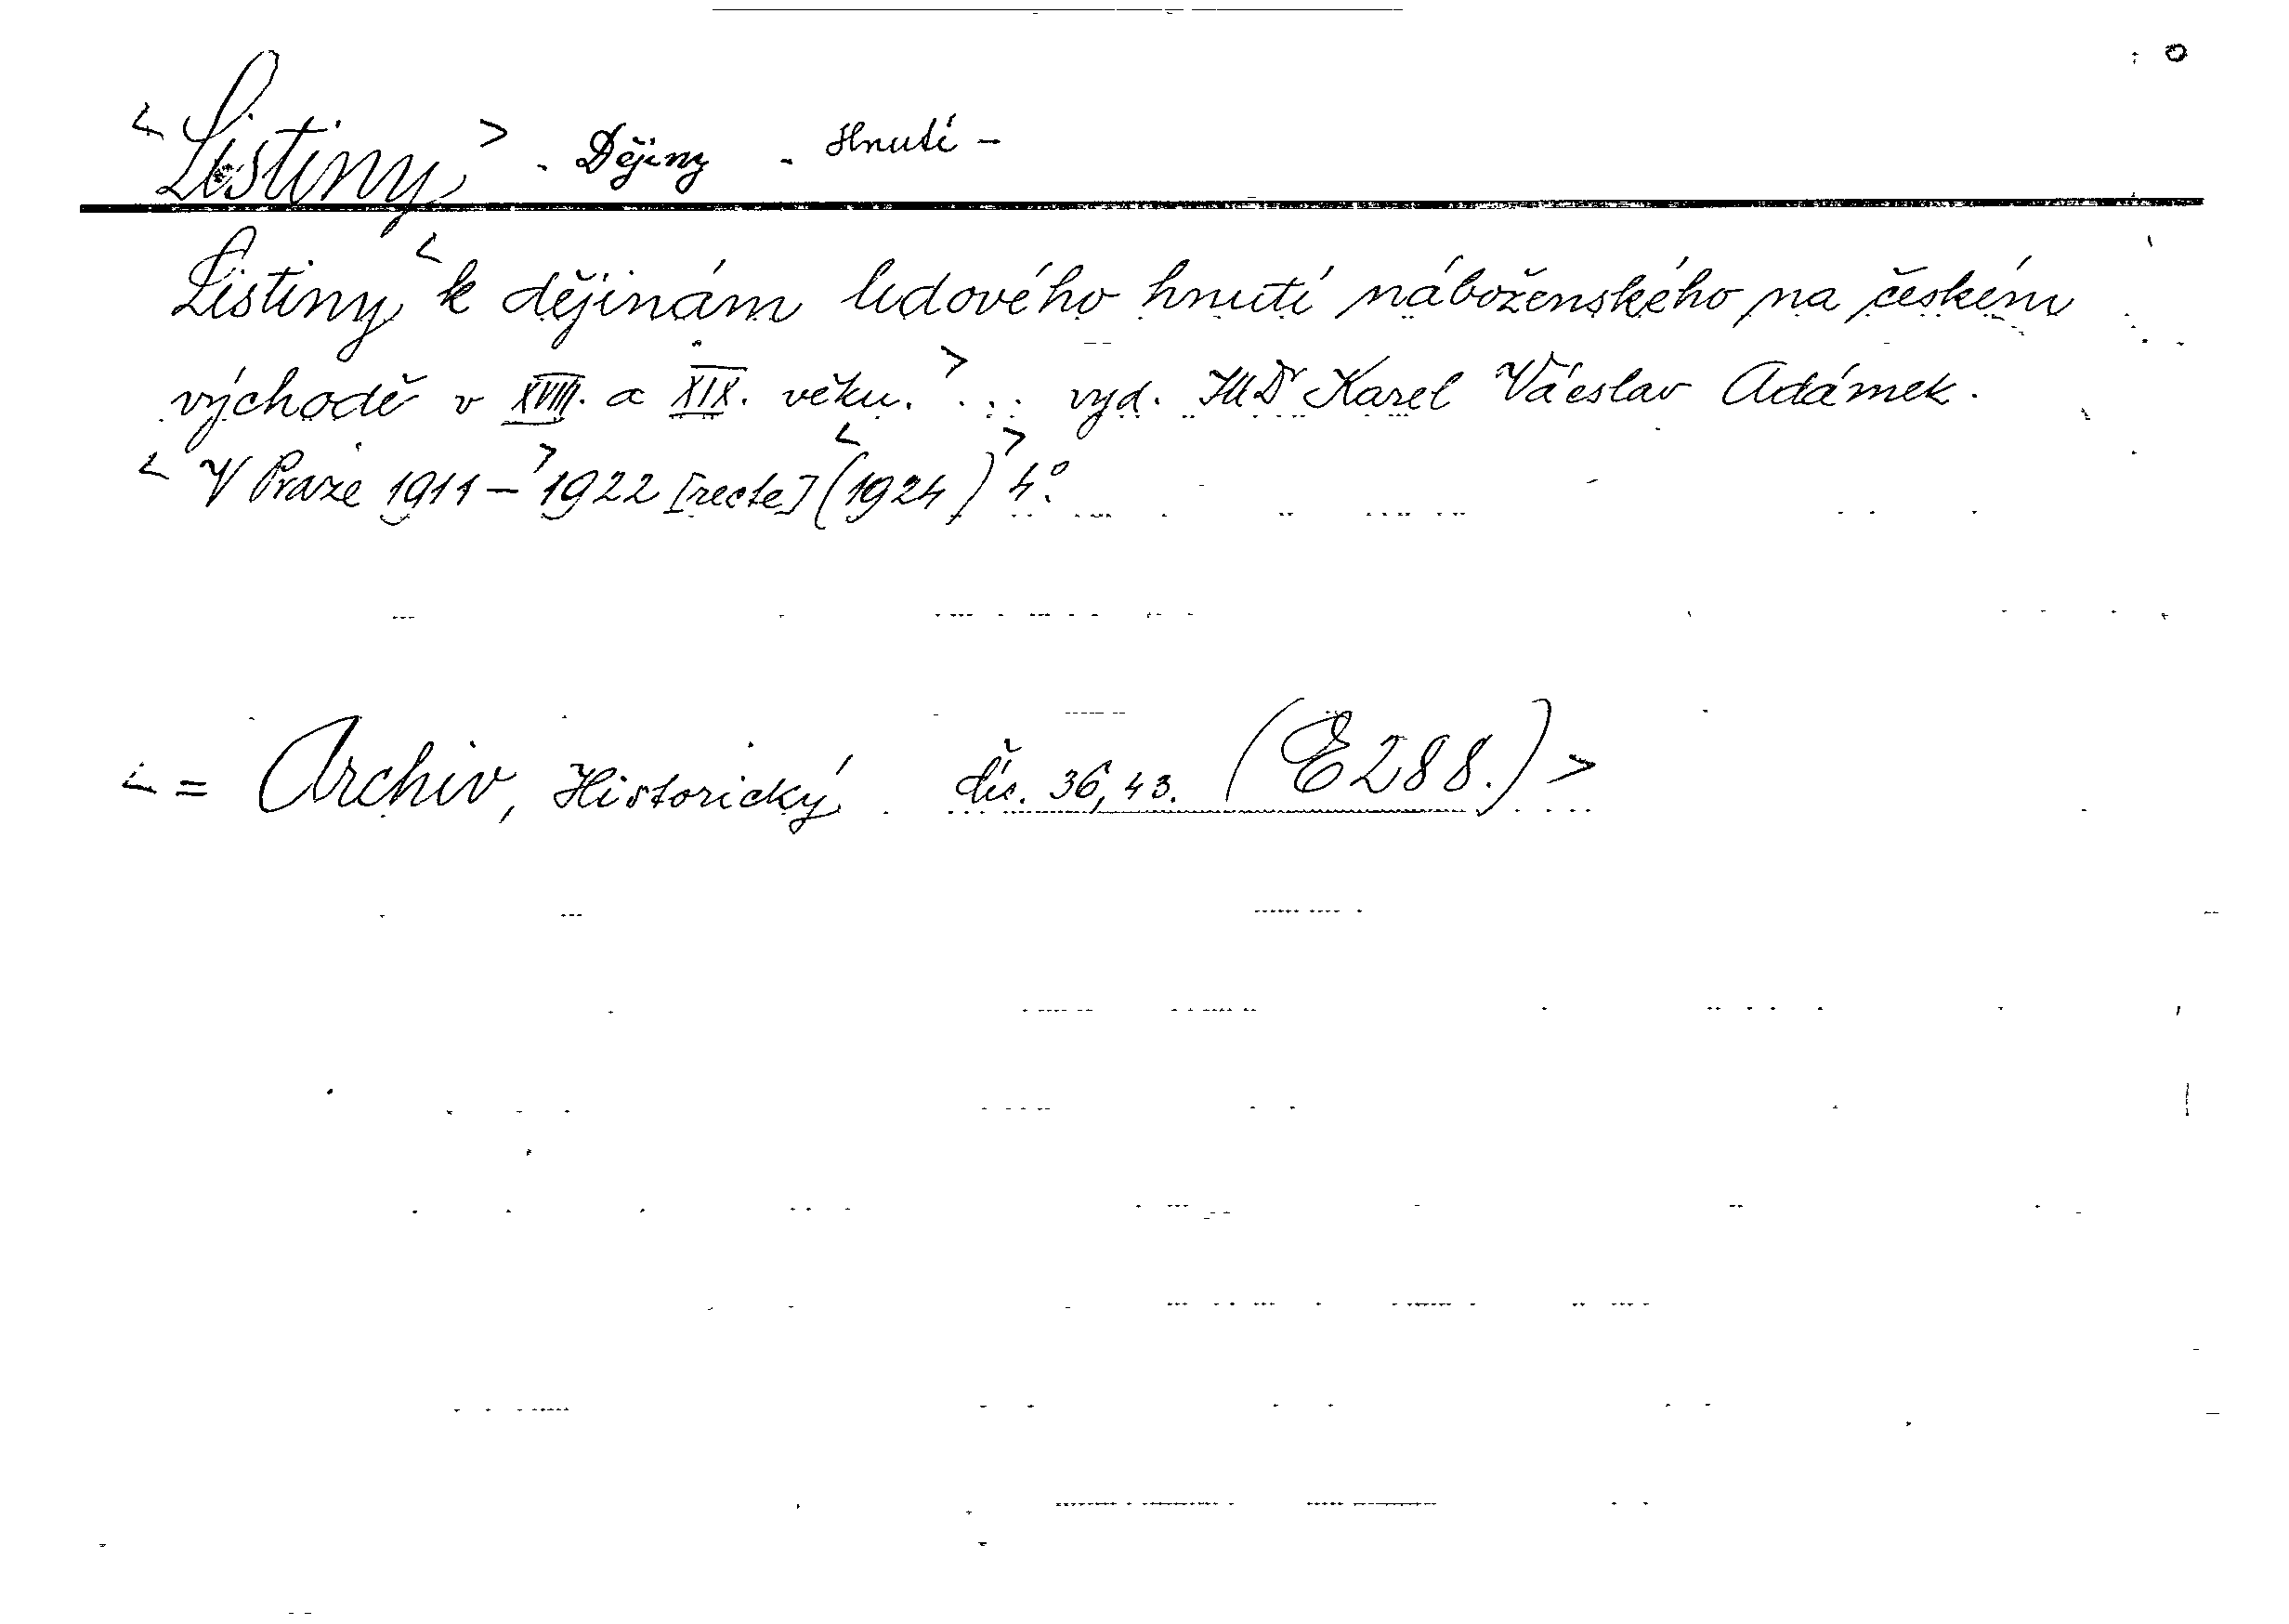 <Listiny> - Dějiny - Hnutí -
Listiny <k dějinám lidového hnutí náboženského na českém
východě v XVIII. a XIX. věku.> ... vyd. JUDr Karel Václav Adámek.
<V Praze 1911-> 1922 [recte] <(1924)> 4°.
<= Archiv, Historický. čís. 36, 43. (E288.)>